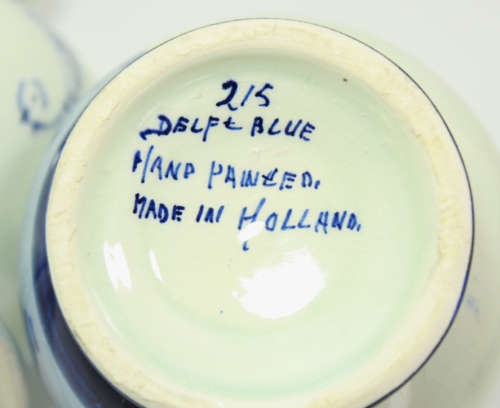 215
DELFt BLUE
HAND PAINtED.
MADE IN HOLLAND.